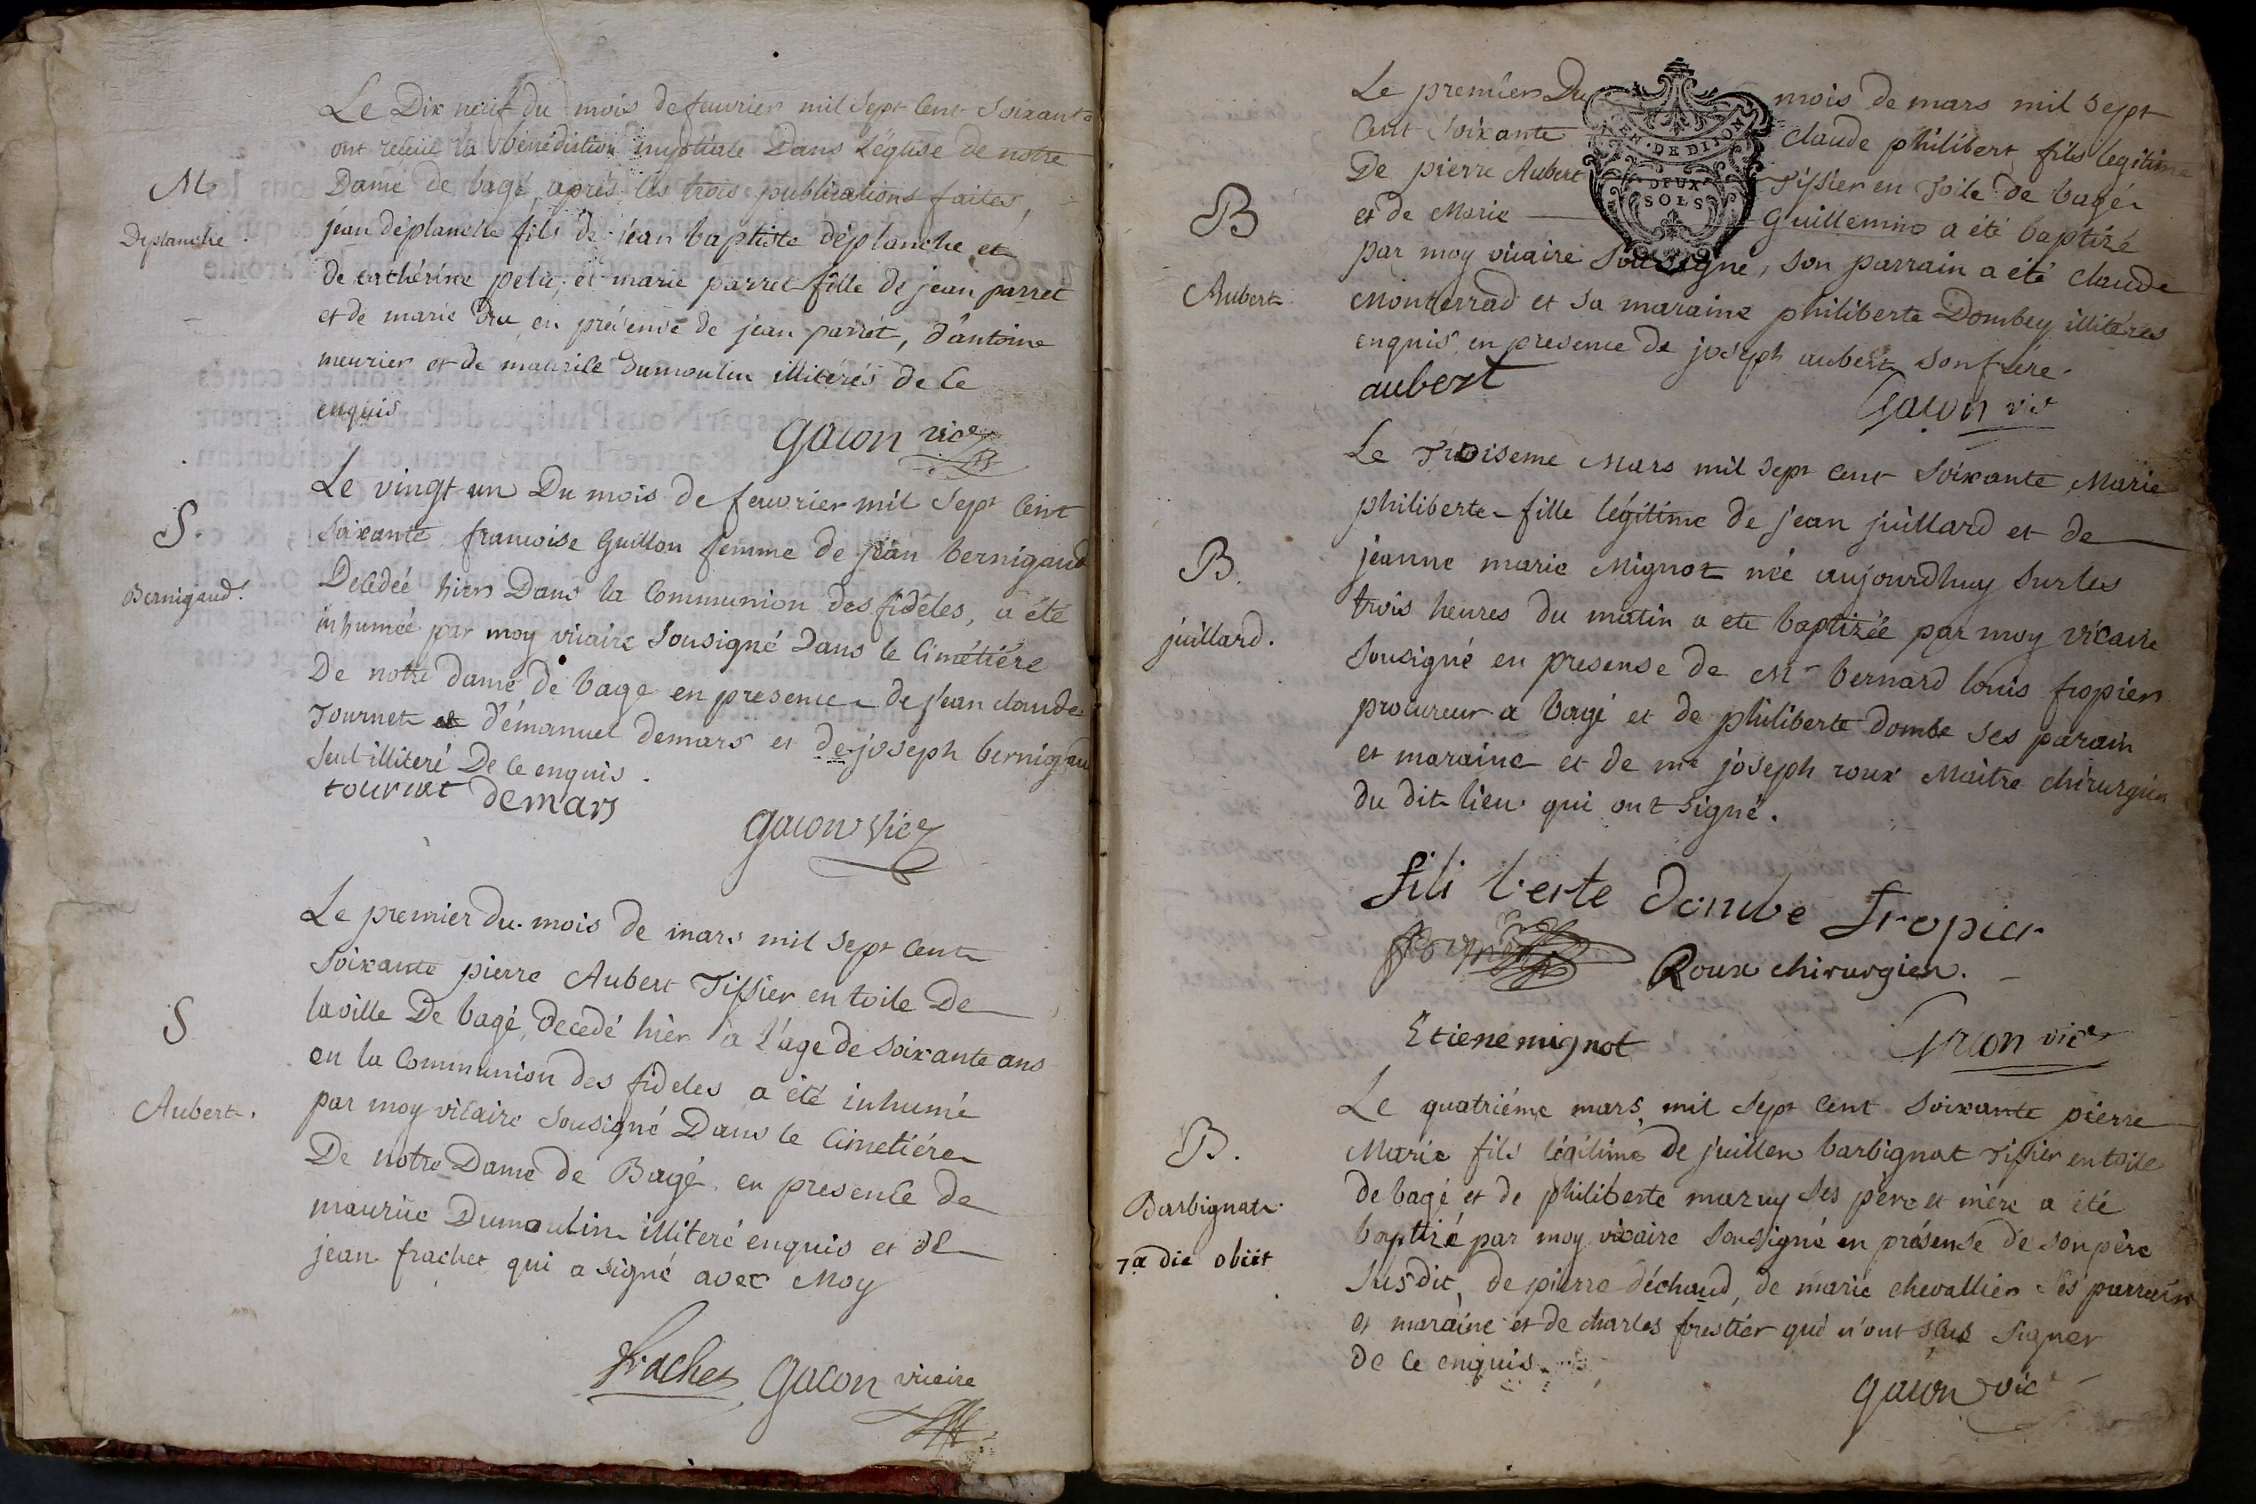 Le Dix neuf du mois de feuvrier mil sept Cent Soixante
ont reçeue la bénédiction nuptiale Dans l'église de notre
M Dame de bagé, aprés les trois publications faites,
Déplanche. jéan déplanche fils de jéan baptiste déplanche et
de cathérine pelu, et marie parret fille de jean parret
et de marie dru en présence de jean parret, d'antoine
meurier et de maurile Dumoulin illitérés de ce
enquis
Gacon vice
Le vingt un Du mois de feuvrier mil Sept Cent
S. Soixante francoise Guillon femme de jean bernigaud
Bernigaud. Decedéé hier Dans la Communion des fidéles, a été
inhumée par moy viçaire Sousigné Dans le Cimétiére
De notre dame de bage en presence de jean claude
Tournet et d'émanuel demars et de joseph bernigau
Seul illiteré De Ce enquis.
tournet demars
gacon Vice
Le premier du mois de mars mil sept Cent
Soixante pierre Aubert Tissier en toile De
S la ville De bagé, decedé hièr à l'age de Soixante ans
en la Communion des fideles a été inhumé
Aubert. par moy viCaire Sousigné Dans le Cimetiére
De notre Dame de Bagé en presence de
maurice Dumoulin illiteré enquis et de
jean frachet qui a signé avec Moy
frachet, Gacon vicaire
Le premier Du mois de mars mil sept
Cent Soixante claude philibert fils legitime
De pierre Aubert Tissier en Toile de bagé
B et de Marie Guillemin a été baptizé
par moy vicaire Sousigné, son parrain a été claude
Aubert Monterrad et sa maraine philiberte Dombey illitéres
enquis en presence de joseph aubert son frere.
GEN. DE DIJON
DEUX
SOLS
aubert
Gacon vic
Le Troiseme Mars mil sept Cent Soixante Marie
philiberte fille légitime de jean juillard et de
B. jeanne marie Mignot néé aujourdhuy sur les
trois heures du matin a ete baptizéé par moy vicaire
juillard. Sousigné en presense de Mr bernard louis fropier
procureur a bagé et de philiberte dombe ses parain
et maraine et de me joseph roux Maitre chirurgien
du dit lieu qui ont signé.
fili berte donbe fropier
Roux chirurgien.
Etiene mignot
Gacon vice
Le quatriéme mars mil sept Cent Soixante pierre
B. Marie fils légitime de juillen barbignat Tissier en toile
Barbignat. de bagé et de philiberte maruy ses père et mère a été
baptizé par moy vicaire Soussigné en présense de son père
7a die obiit Susdit, de pierre déchaud, de marie chevallier ses parrain
et maraine et de charles frestier qui n'ont sçus signer
de ce enquis
gacon vic